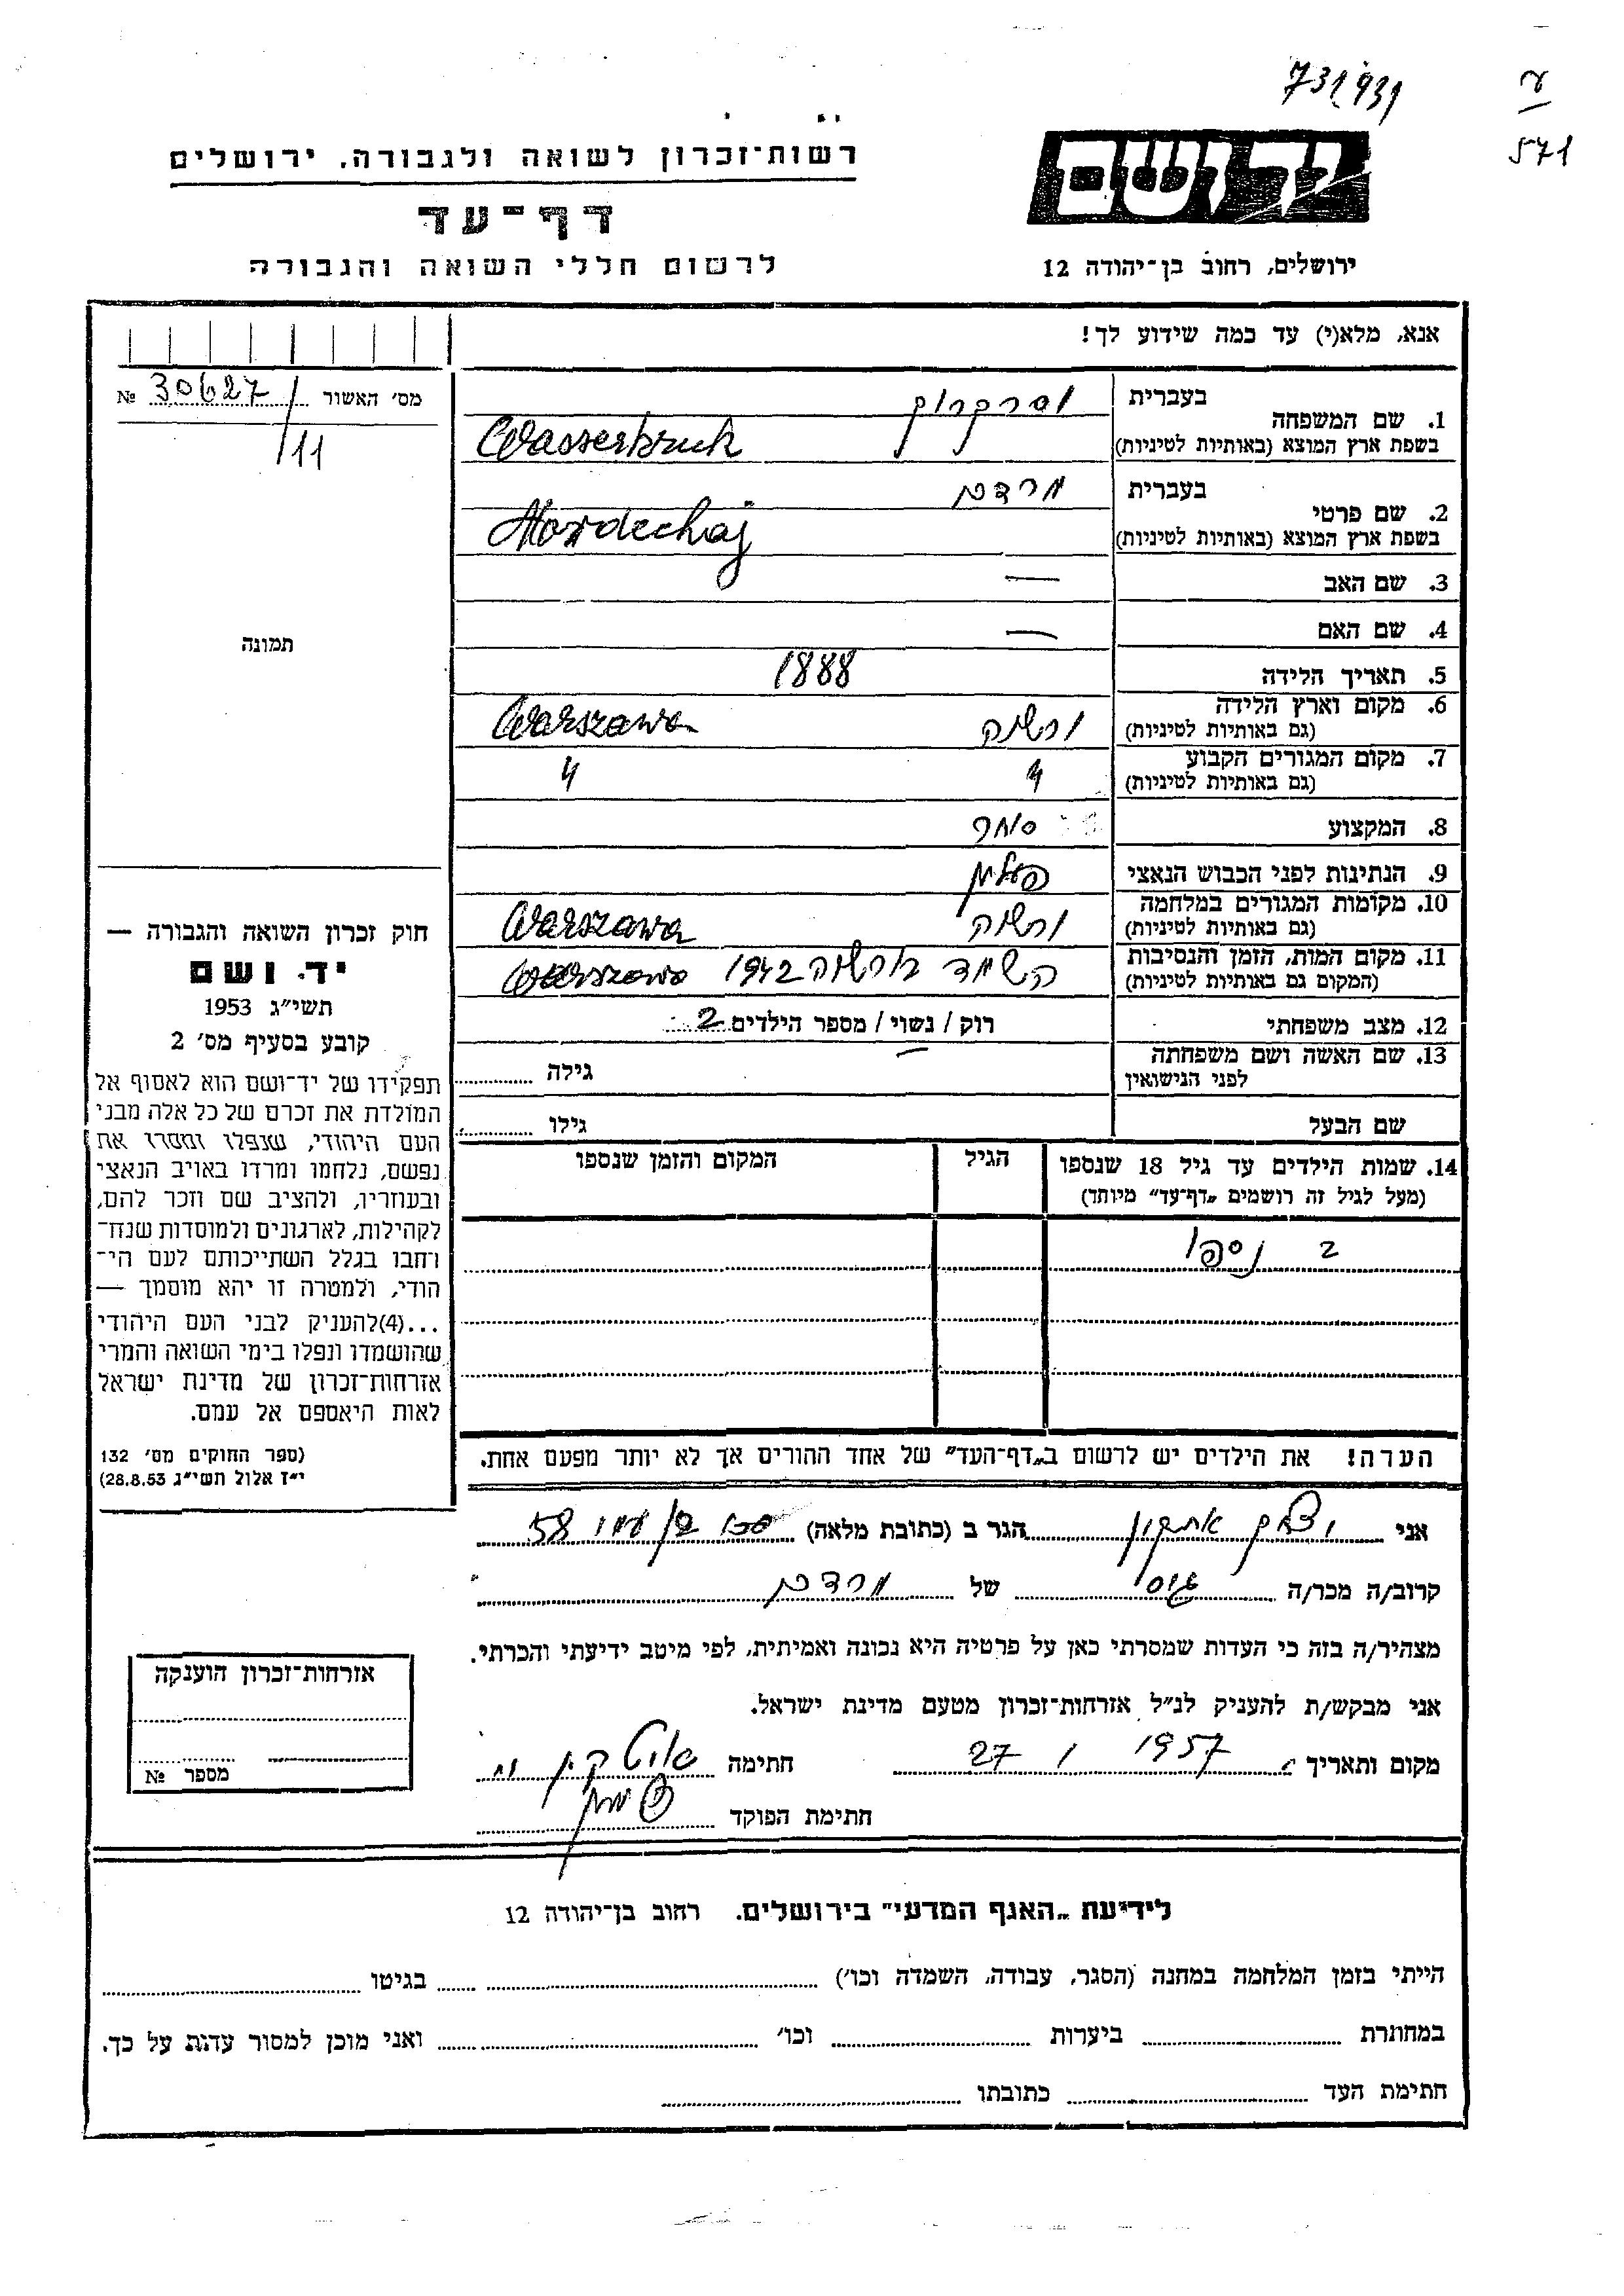 731/931
571
רשות־זכרון לשואה ולגבורה, ירושלים
יד ושם
דף־עד
לרשום חללי השואה והגבורה
ירושלים, רחוב בן־יהודה 12
אנא, מלא(י) עד כמה שידוע לך!
מס׳ האשור 30627 №
/11
תמונה
1. שם המשפחה
בעברית וסרקרוק
בשפת ארץ המוצא (באותיות לטיניות) Wasserkruk
2. שם פרטי
בעברית מרדכי
בשפת ארץ המוצא (באותיות לטיניות) Mordechaj
3. שם האב —
4. שם האם —
5. תאריך הלידה 1888
6. מקום וארץ הלידה ורשה Warszawa
(גם באותיות לטיניות)
7. מקום המגורים הקבוע 4 4
(גם באותיות לטיניות)
8. המקצוע סוחר
9. הנתינות לפני הכבוש הנאצי פולין
10. מקומות המגורים במלחמה ורשה Warszawa
(גם באותיות לטיניות)
11. מקום המות, הזמן והנסיבות הושמד בורשה 1942 Warszawa
(המקום גם באותיות לטיניות)
12. מצב משפחתי רוק / נשוי / מספר הילדים 2
13. שם האשה ושם משפחתה — גילה
לפני הנישואין
שם הבעל גילו
14. שמות הילדים עד גיל 18 שנספו הגיל המקום והזמן שנספו
(מעל לגיל זה רושמים „דף־עד״ מיוחד)
2 ניספו
הערה! את הילדים יש לרשום ב„דף־העד״ של אחד ההורים אך לא יותר מפעם אחת.
חוק זכרון השואה והגבורה —
יד ושם
תשי״ג 1953
קובע בסעיף מס׳ 2
תפקידו של יד־ושם הוא לאסוף אל
המולדת את זכרם של כל אלה מבני
העם היהודי, שנפלו ומסרו את
נפשם, נלחמו ומרדו באויב הנאצי
ובעוזריו, ולהציב שם וזכר להם,
לקהילות, לארגונים ולמוסדות שנח־
רחבו בגלל השתייכותם לעם הי־
הודי, ולמטרה זו יהא מוסמך —
...(4)להעניק לבני העם היהודי
שהושמדו ונפלו בימי השואה והמרי
אזרחות־זכרון של מדינת ישראל
לאות היאספם אל עמם.
(ספר החוקים מס׳ 132
י״ז אלול תשי״ג 28.8.53)
אני הגר ב (כתובת מלאה) 58
קרוב/ה מכר/ה גיסי של מרדכי
מצהיר/ה בזה כי העדות שמסרתי כאן על פרטיה היא נכונה ואמיתית, לפי מיטב ידיעתי והכרתי.
אני מבקש/ת להעניק לנ״ל אזרחות־זכרון מטעם מדינת ישראל.
מקום ותאריך 1957 / 27 חתימה
חתימת הפוקד
אזרחות־זכרון הוענקה
מספר №
לידיעת „האגף המדעי״ בירושלים. רחוב בן־יהודה 12
הייתי בזמן המלחמה במחנה (הסגר, עבודה, השמדה וכו׳) בגיטו
במחתרת ביערות וכו׳ ואני מוכן למסור עדות על כך.
חתימת העד כתובתו